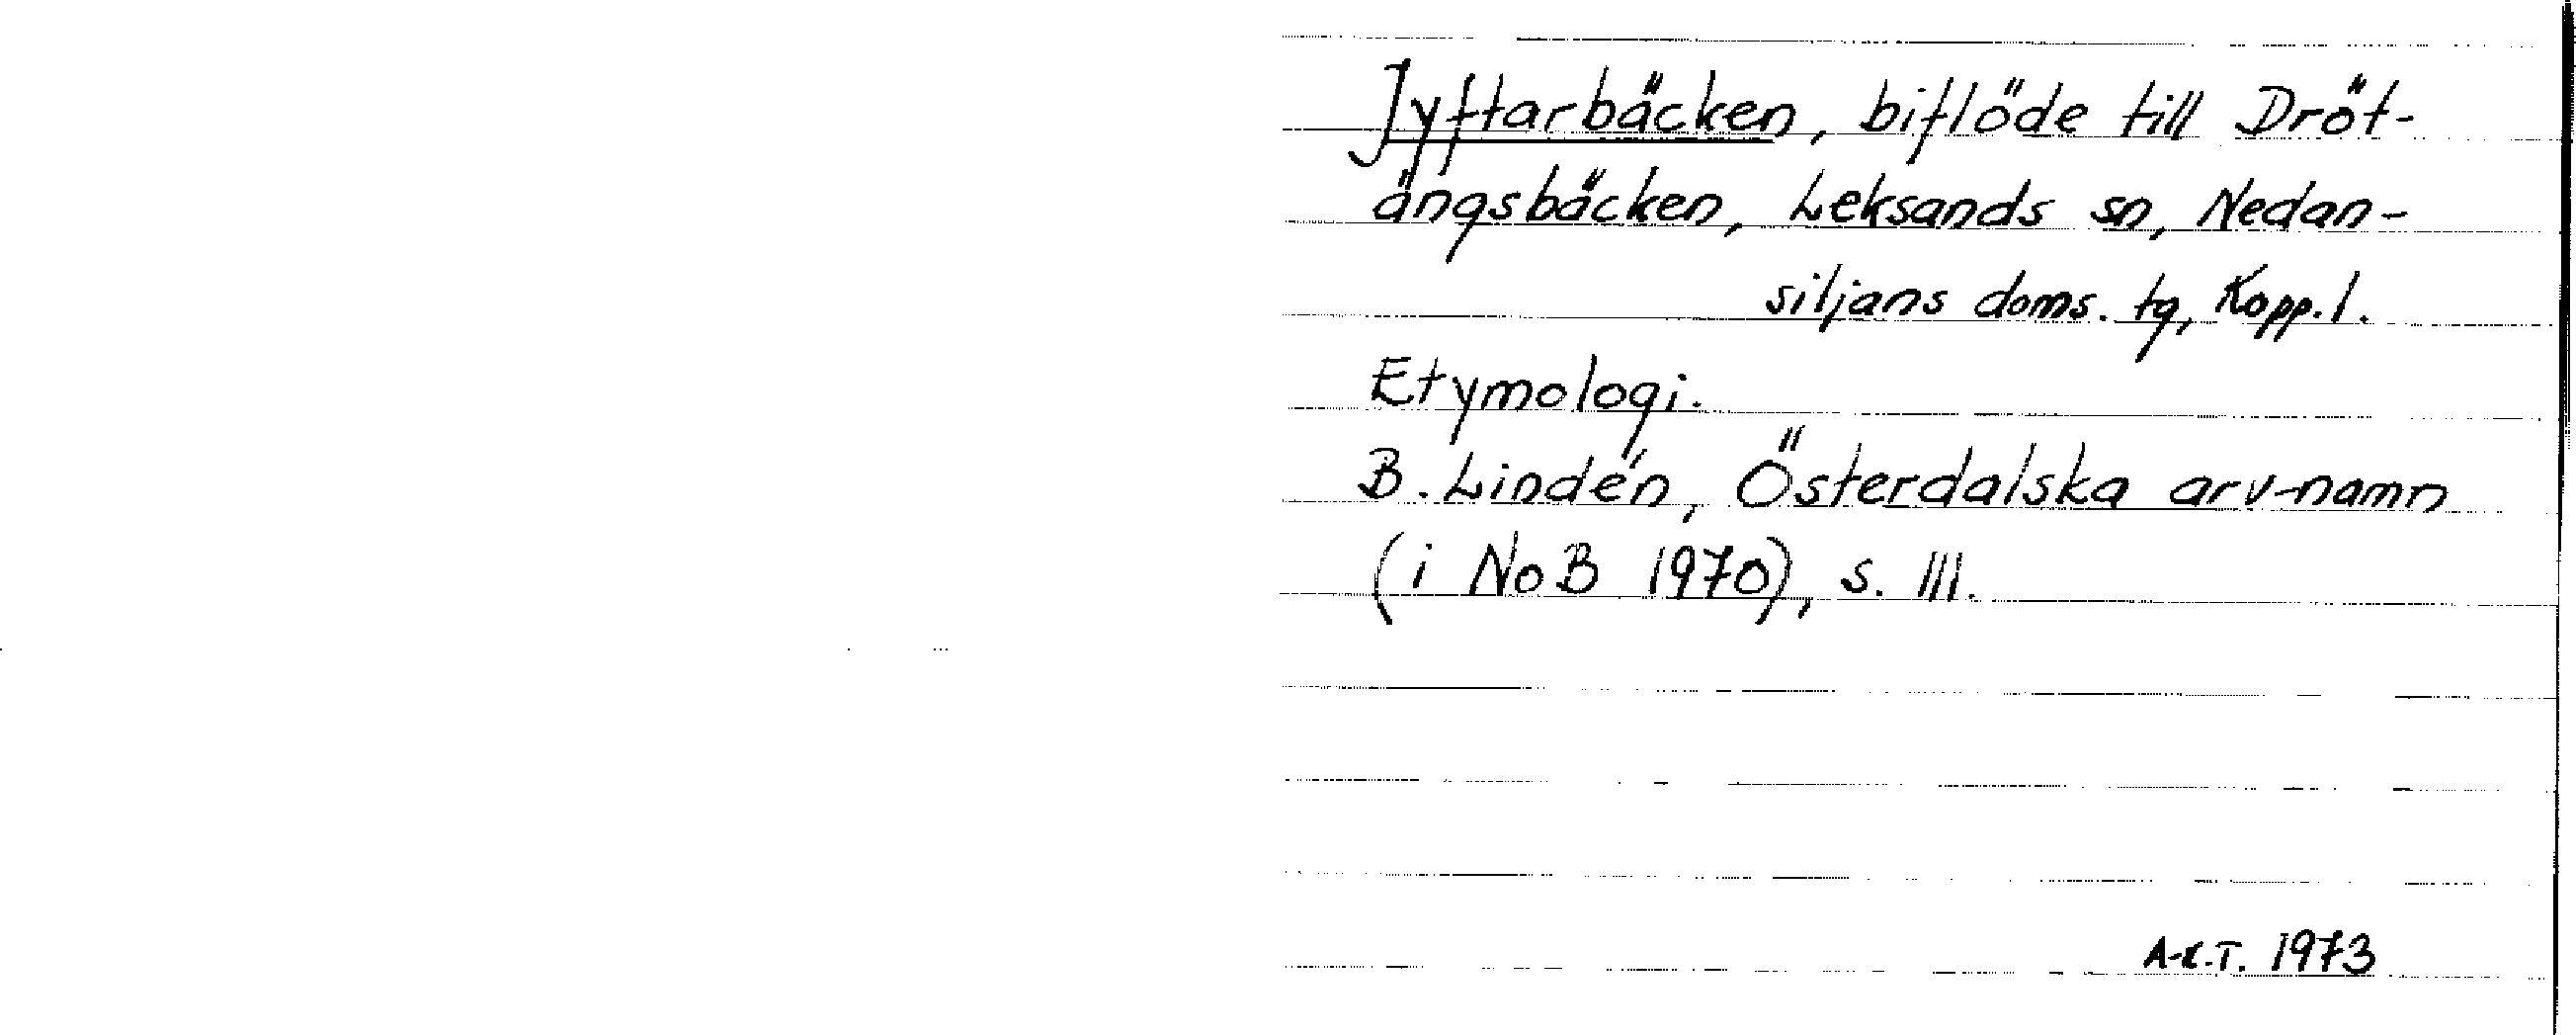 Jyftarbäcken, biflöde till Dröt-
ängsbäcken, Leksands sn, Nedan-
siljans doms. tg, Kopp. l.
Etymologi.
B. Lindén, Österdalska arv-namn
(i NoB 1970), s. 111.
A-K.T. 1973